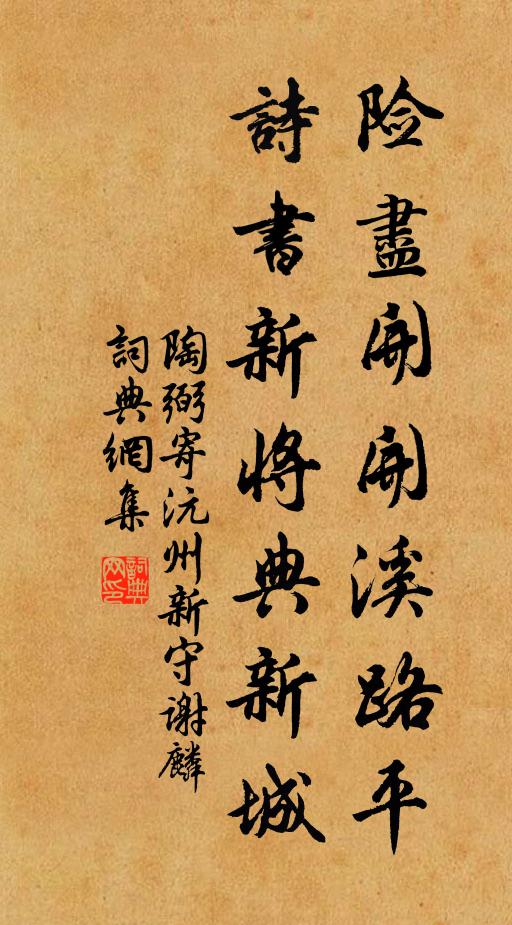 险盡開開溪路平
詩書新將典新城
陶弼寄沅州新守谢麟
詞典網集
詞典网印